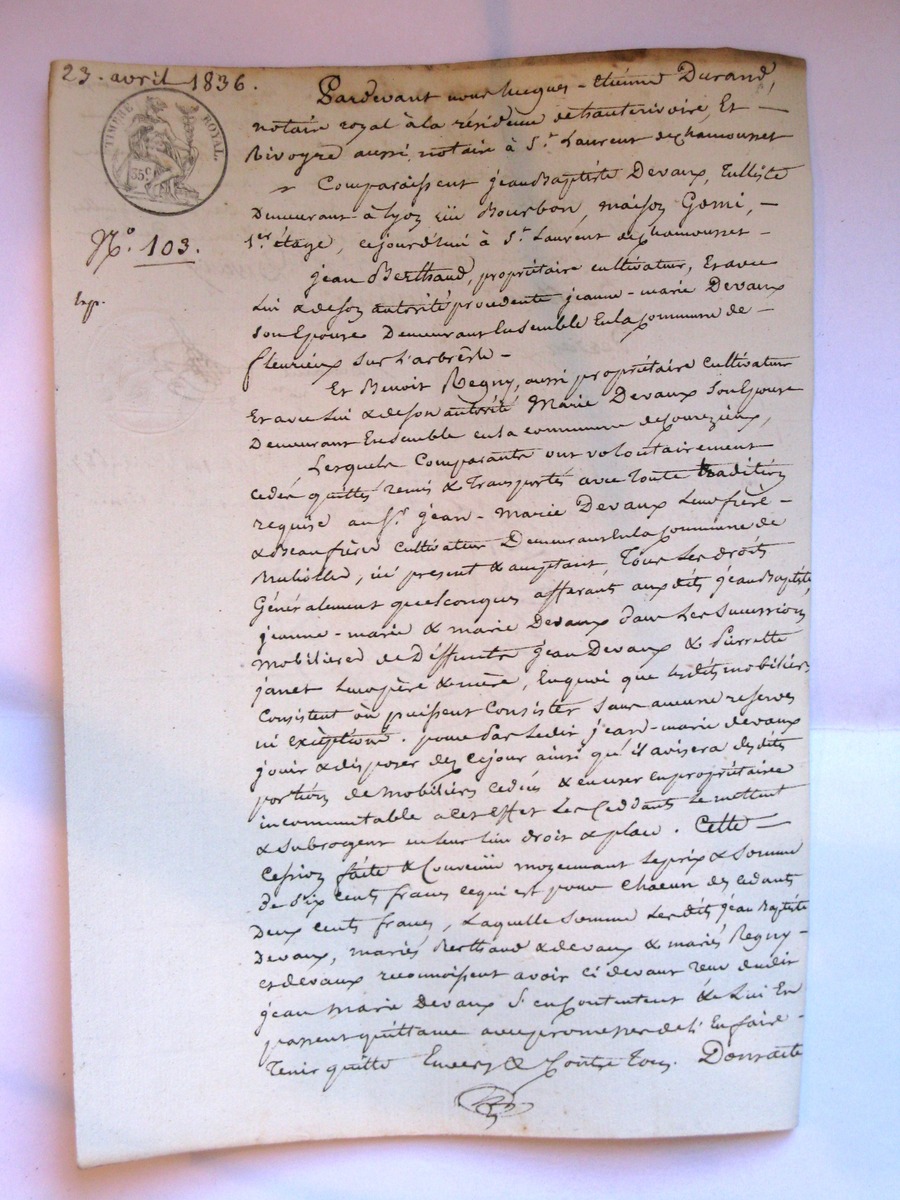 23. avril 1836.
TIMBRE ROYAL
35c
N.o 103.
Exp.
Pardevant nous hugues-Etienne Durand,
notaire royal à la résidence de hauterivoire, Et
Rivoyre aussi notaire à St. Laurent de chamousset
Comparaissent jean Baptiste Devaux, Tulliste
Demeurant à Lyon rue Bourbon, maison Gomi,
1er étage, cejourd'hui à St. Laurent de chamousset
jean Berthaud, propriétaire cultivateur, Et avec
Lui & de son autorité procedente jeanne-marie Devaux
son Epouse Demeurant Ensemble En la Commune de
fleurieux sur L'arbresle
Et Benoit Regny, aussi propriétaire cultivateur
Et avec Lui & de son autorité Marie Devaux son Epouse
Demeurant Ensemble en la commune de Courzieux,
Lesquels Comparants ont volontairement
cédé quitté remis & Transporté avec toute tradition
requise au Sr. jean-Marie Devaux Leur frère
& Beau frère cultivateur Demeurant En la Commune de
, ici present & acceptant, Tous Les droits
Généralement quelconques afférants auxdits jean Baptiste,
jeanne-marie & marie Devaux dans Les successions
mobilieres de Deffunts jean Devaux & Pierrette
janet Leurs père & mère, En quoi que lesdits mobiliers
Consistent où puissent Consister sans aucune reserves
ni exéption. pour par Ledit jean-marie devaux
jouir & disposer dez cejour ainsi qu'il avisera desdits
portion de mobiliers cédés & en user en propriétaire
incommutable a cet effet Les Ceddants Le mettent
& subrogent en leur lieu droit & place. Cette
Cession faite & Convenue moyennant le prix & somme
de six cents francs cequi est pour chacun des cédants
Deux cents francs, Laquelle somme Lesdits jean Baptiste
Devaux, mariés Berthaud & devaux & mariés Regny
et devaux reconnoissent avoir ci devant reçu dudit
jean Marie Devaux s'en Contentent & Lui En
passent quittance avec promesse de l'En faire
Tenir quitte Envers & Contre Tous. Dont acte